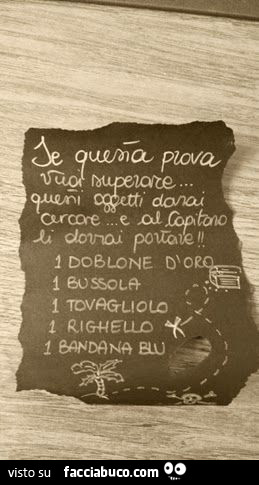 Se questa prova
vuoi superare...
questi oggetti dovrai
cercare...e al Capitano
li dovrai portare!!
1 DOBLONE D'ORO
1 BUSSOLA
1 TOVAGLIOLO
1 RIGHELLO
1 BANDANA BLU
visto su facciabuco.com